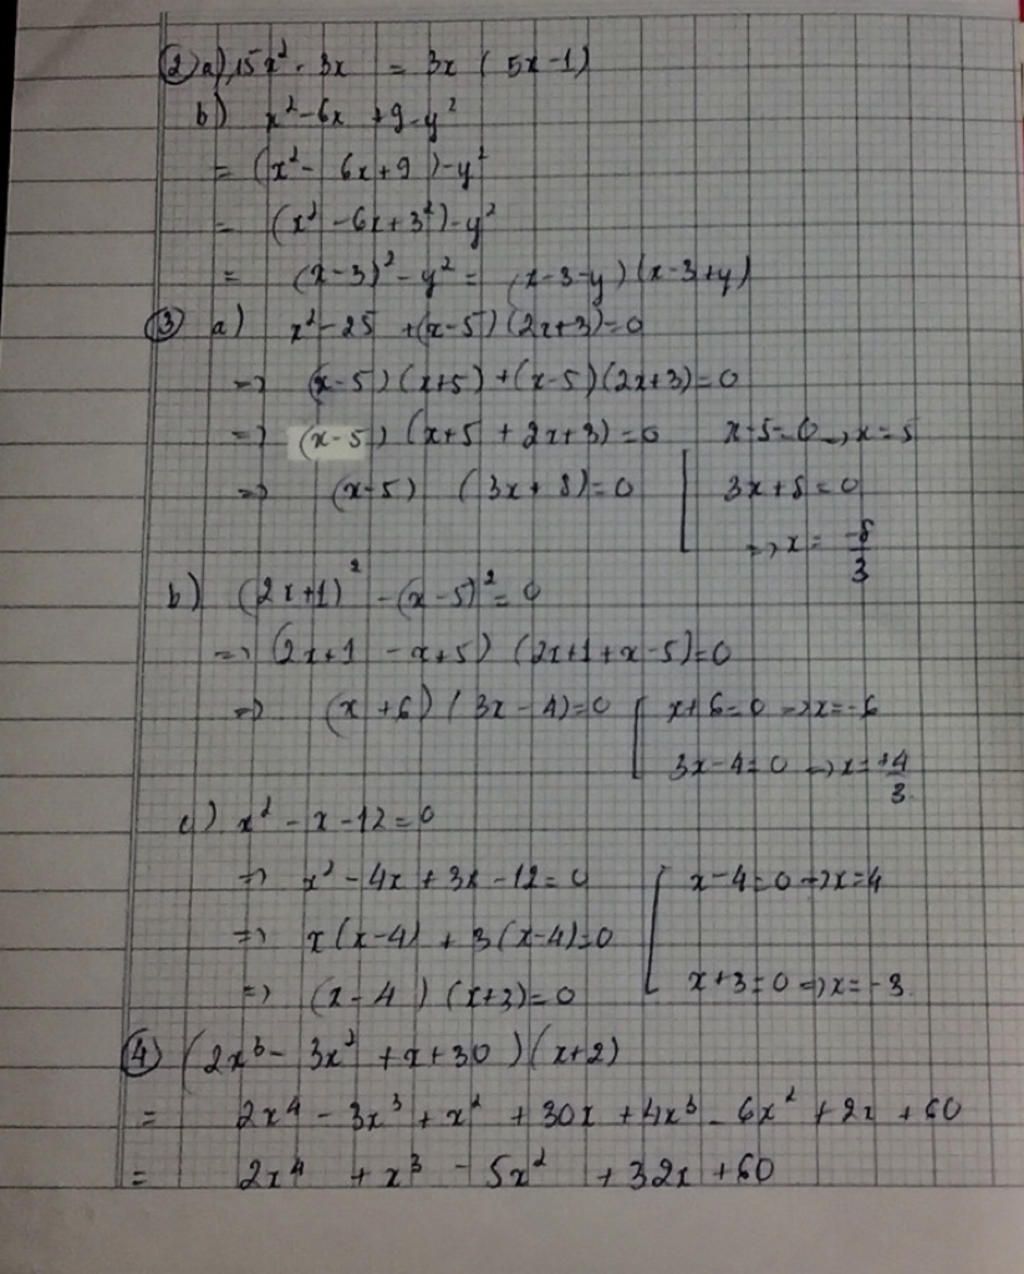 ② a) 15x² - 3x = 3x (5x-1)
b) x² - 6x + 9 - y²
= (x² - 6x + 9) - y²
= (x² - 6x + 3²) - y²
= (x-3)² - y² = (x-3-y)(x-3+y)
③ a) x² - 25 + (x-5)(2x+3) = 0
=> (x-5)(x+5) + (x-5)(2x+3) = 0
=> (x-5)(x+5 + 2x+3) = 0 x-5=0 => x=5
=> (x-5) (3x+8) = 0 3x+8=0
=> x = -8/3
b) (2x+1)² - (x-5)² = 0
=> (2x+1 - x+5) (2x+1+x-5) = 0
=> (x+6)(3x-4) = 0 [ x+6=0 => x=-6
3x-4=0 => x=+4/3
c) x² - x - 12 = 0
=> x² - 4x + 3x - 12 = 0 [ x-4=0 => x=4
=> x(x-4) + 3(x-4) = 0
=> (x-4)(x+3) = 0 x+3=0 => x=-3
④ (2x³ - 3x² + x + 30)(x+2)
= 2x⁴ - 3x³ + x² + 30x + 4x³ - 6x² + 2x + 60
= 2x⁴ + x³ - 5x² + 32x + 60